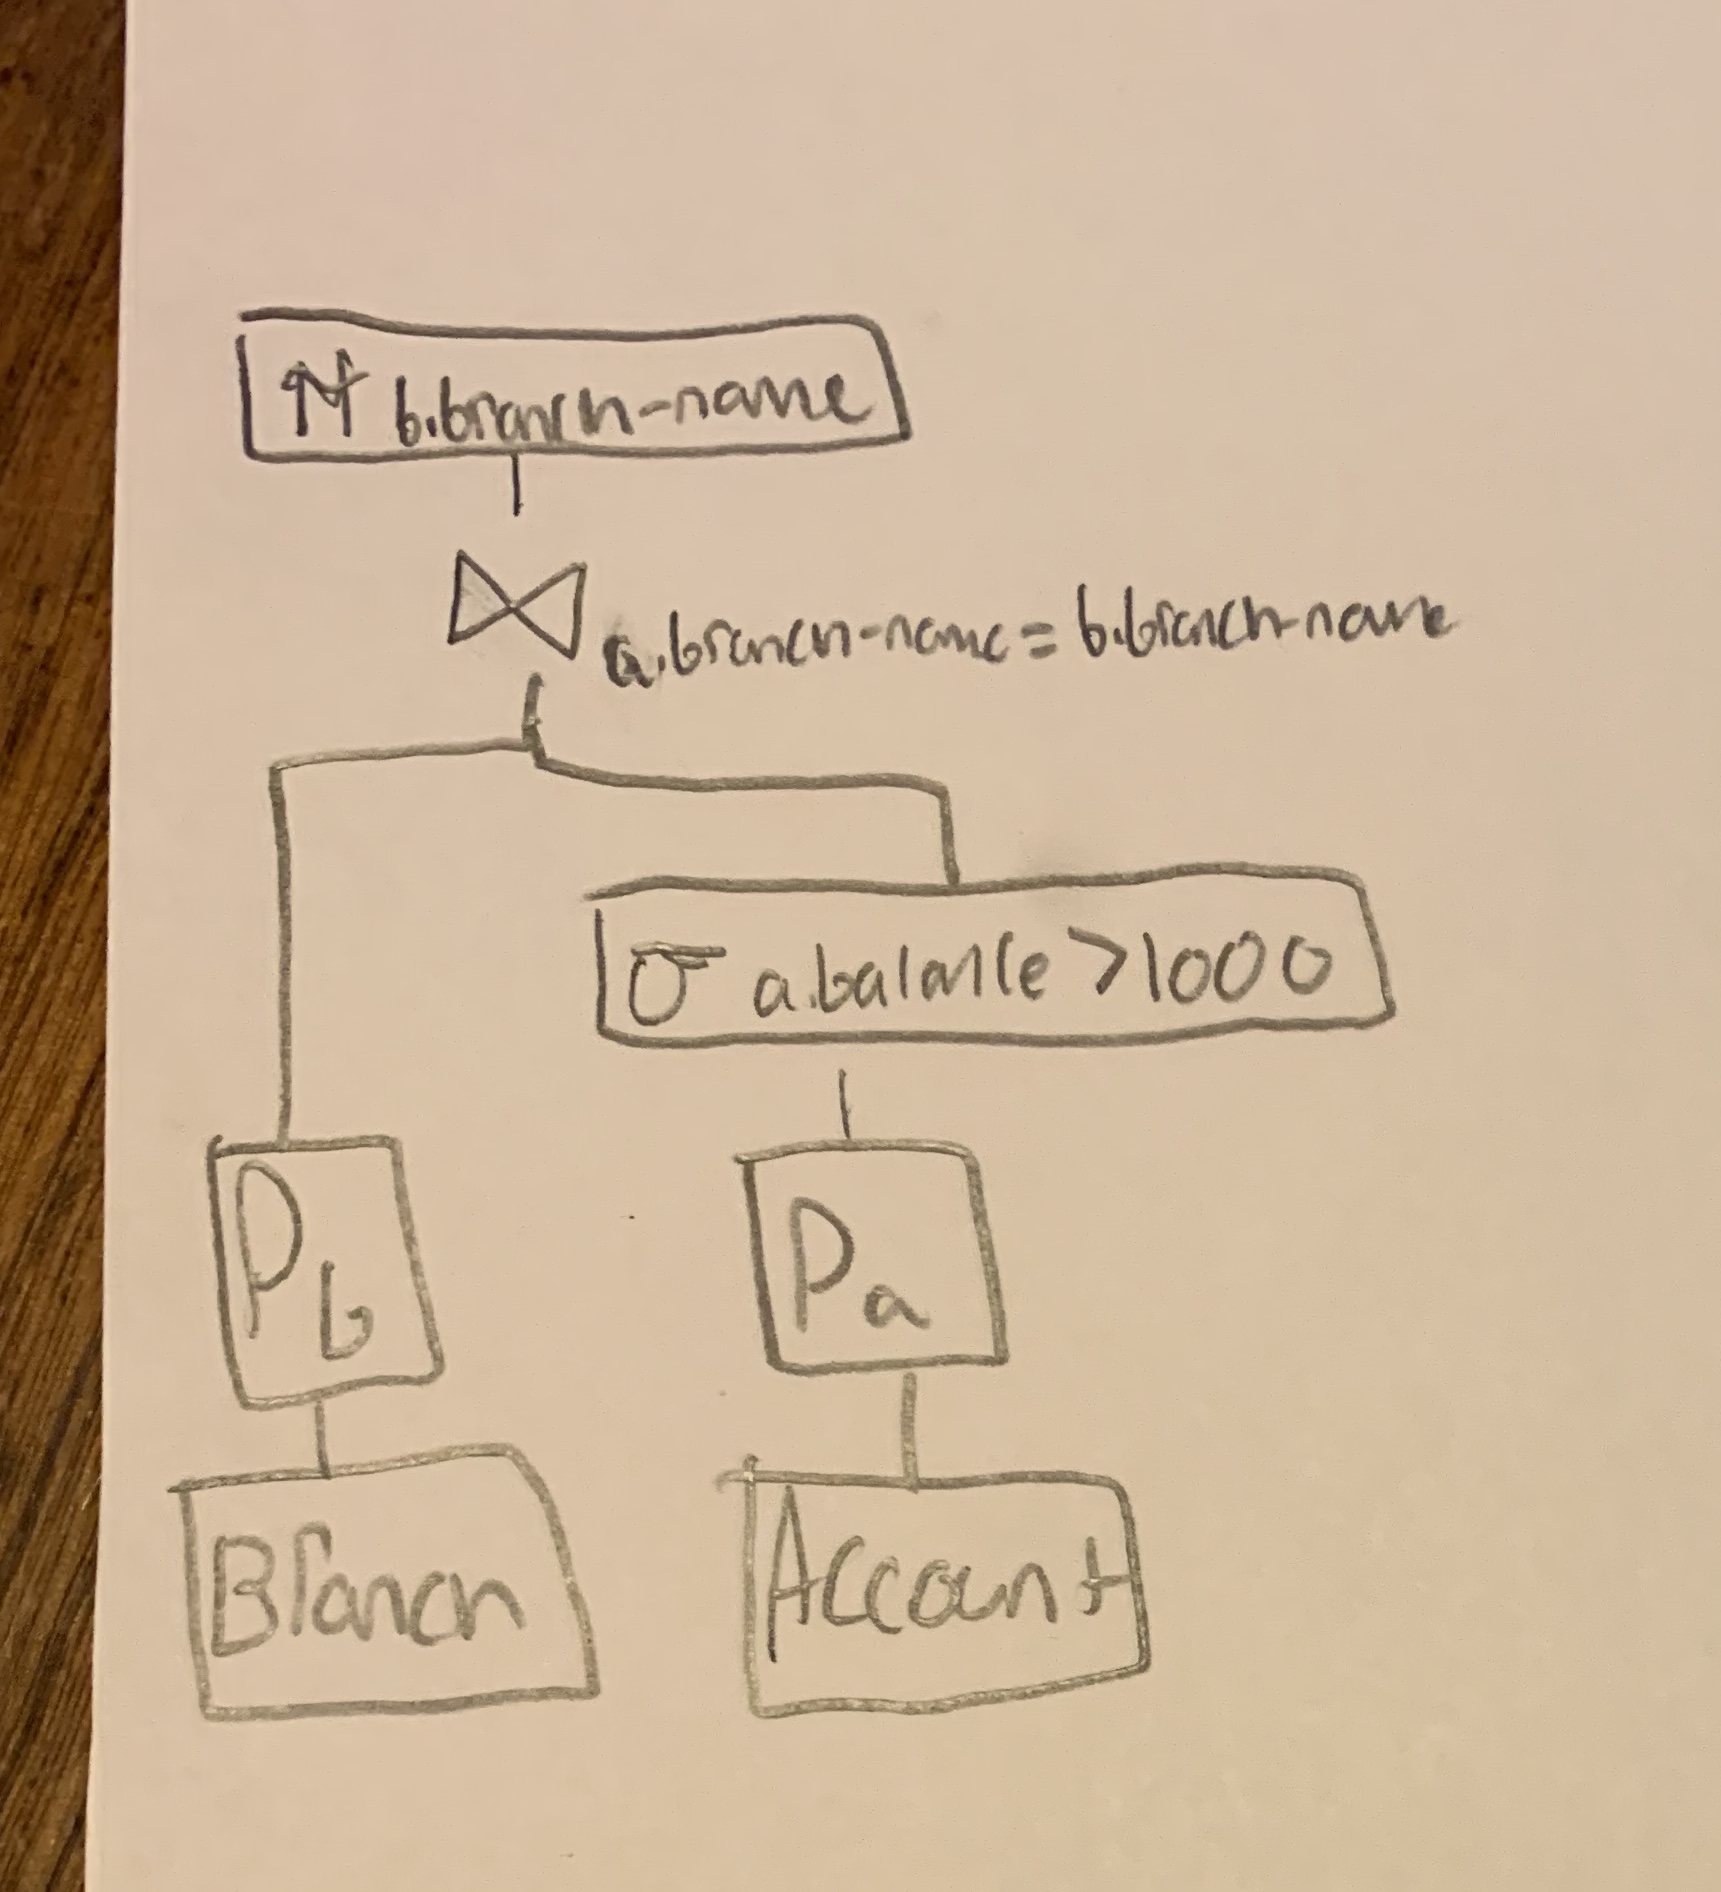 π b.branch-name
⋈ a.branch-name = b.branch-name
σ a.balance > 1000
ρ b
ρ a
Branch
Account